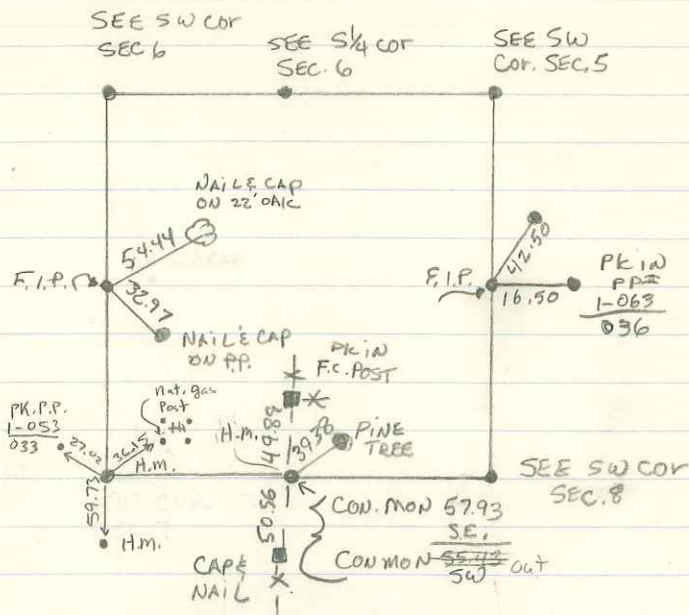 SEE SW COR
SEC 6
SEE S1/4 COR
SEC. 6
SEE SW
COR. SEC, 5
NAIL & CAP
ON 22" OAK
54.44
F.I.P.
32.97
NAIL & CAP
ON P.P.
42.50
F.I.P.
16.50
PK IN
PP#
1-063
036
PK IN
F.C. POST
nat. gas
Post
PK. P.P.
1-053
033
27.02
36.15
H.M.
59.73
H.M.
H.M.
49.89
PINE
TREE
50.56
CAP &
NAIL
SEE SW COR
SEC. 8
CON. MON 57.93
S.E.
CON MON 55.43 out
SW